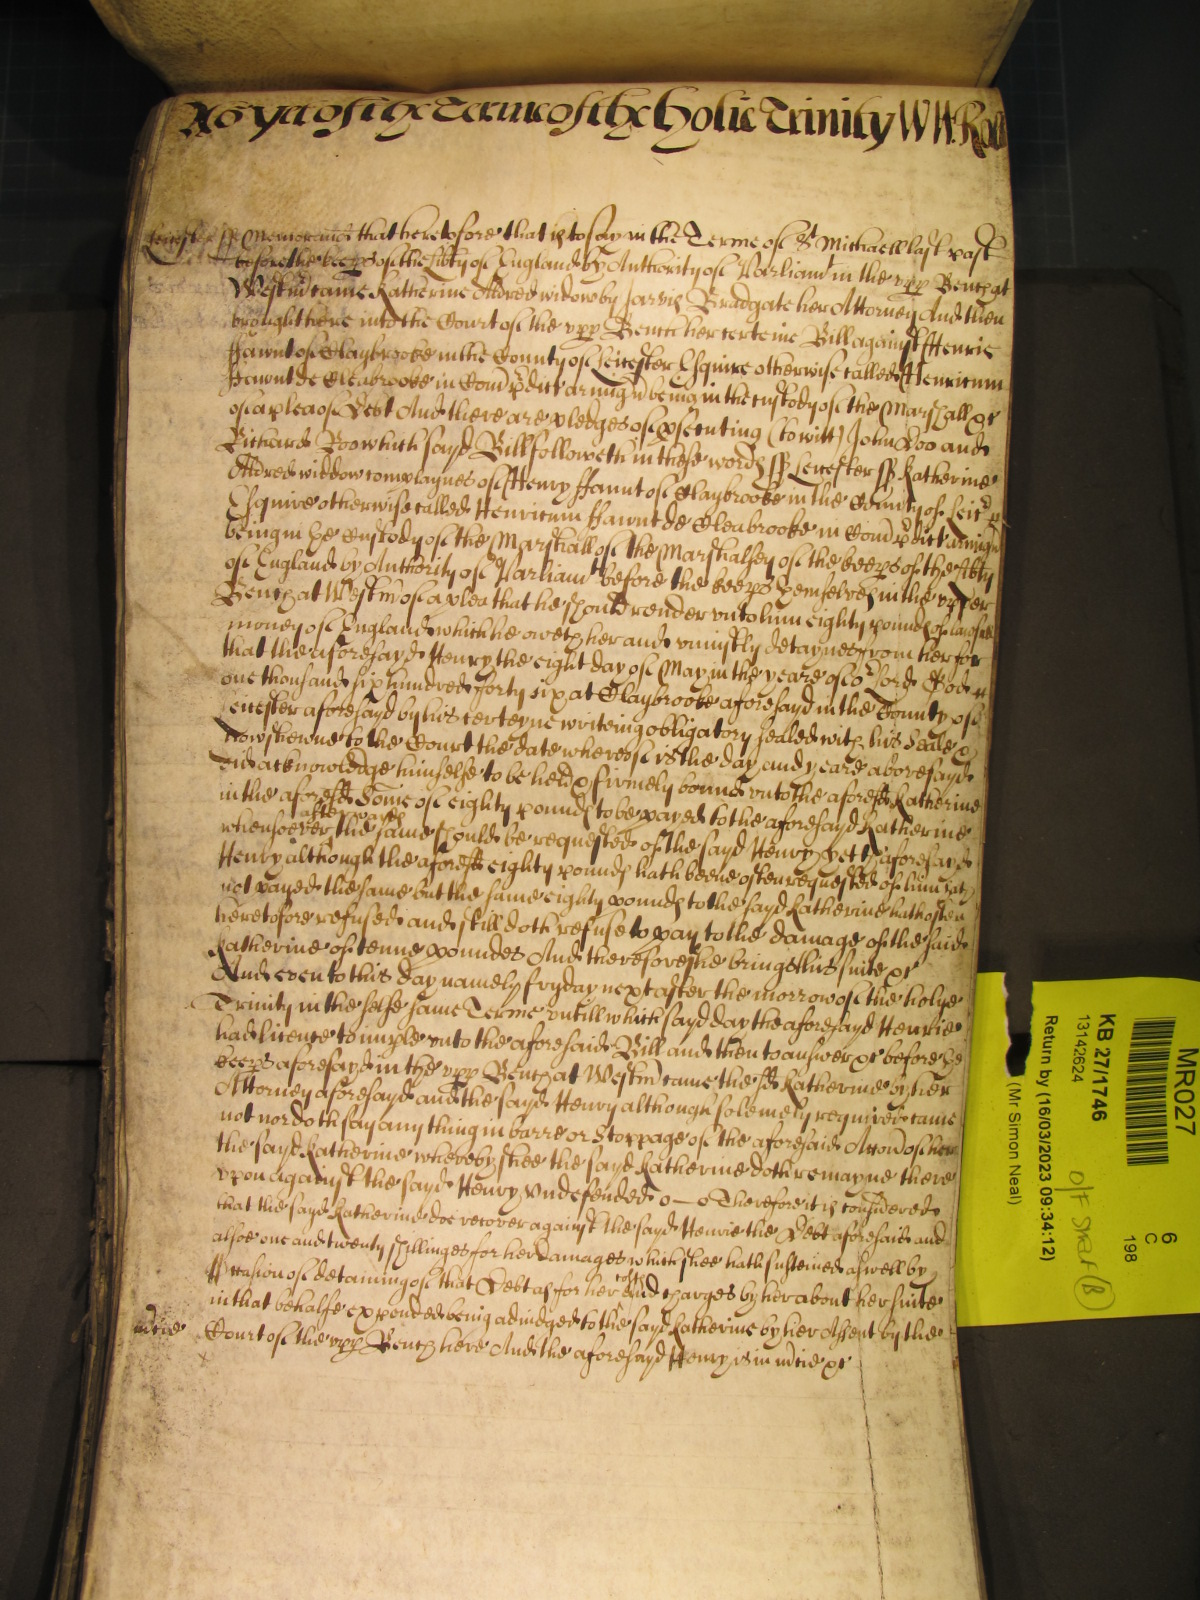 As yet of the Terme of the holie Trinity W H. Roll
Leicester ss Memorand that heretofore that is to say in the Terme of St Michaell last past
before the keeps of the libty of England by Authority of Parliamt in the upp Bench at
Westmr came Katherine Aldred widow by Jarvis Bradgate her Attorney And then
brought here into the Court of the upp Bench her certeine Bill against Henrie
ffawnt of Claybrooke in the County of Leicester Esquire otherwise called Henricum
ffawnt de Cleabrooke in Com pdict armigm being in the custody of the Marshall &c
of a plea of Debt And there are pledges of psecuting (to witt) John Doo and
Richard Roo which sayd Bill followeth in these words ss Leicester ss Katherine
Aldred widdow complaynes of Henry ffawnt of Claybrooke in the County of Leicr
Esquire otherwise called Henricum ffawnt de Cleabrooke in Com pdict armigm
being in the Custody of the Marshall of the Marshalsey of the keeps of the libty
of England by Authority of Parliamt before the keeps themselves in the upper
Bench at Westmr of a plea that he should render unto him eighty pounds of lawfull
money of England which he oweth her and uniustly detaynes from her for
that the aforesayd Henry the eight day of May in the yeare of or Lord God
one thousand six hundred forty six at Claybrooke aforesayd in the County of
Leicester aforesayd by his certeyne writeing obligatory sealed with his Seale &
now shewne to the Court the date whereof is the day and yeare abovesayd
did acknowledge himselfe to be held & firmely bound unto the aforesd Katherine
in the aforesd Some of eighty pounds to be payed to the aforesayd Katherine
afterwards
whensoever the same should be requested of the sayd Henry yet the aforesayd
Henry although the aforesd eighty pounds hath beene often requested of him hath
not payed the same but the same eighty pounds to the sayd Katherine hath often
heretofore refused and still doth refuse to pay to the damage of the said
Katherine of tenne poundes And therefore she brings this suite &c
And even to this day namely fryday next after the morrow of the holye
Trinity in the selfe same Terme untill which sayd day the aforesayd Henrie
had licence to imple unto the aforesaid Bill and then to answer &c before the
keeps aforesayd in the upp Bench at Westmr came the sd Katherine by her
Attorney aforesayd and the sayd Henry although solemely required came
not nor doth say any thing in barre or Stoppage of the aforesaid Accon of her
the sayd Katherine whereby shee the sayd Katherine doth remayne there
upon against the sayd Henry Undefended o — o Therefore it is considered
that the sayd Katherine doe recover against the sayd Henrie the Debt aforesaid and
alsoe one and twenty shillinges for her damages which shee hath susteined aswell by
occasion of detaining of that Debt as for her
costs
and charges by her about her suite
in that behalfe expended being adiudged to the sayd Katherine by her Assent by the
mcie
Court of the upp Bench here And the aforesayd Henry is in mcie &c
MR027
6
C
198
KB 27/1746
13142624
Return by (16/03/2023 09:34:12)
(Mr Simon Neal)
O/F
(B)